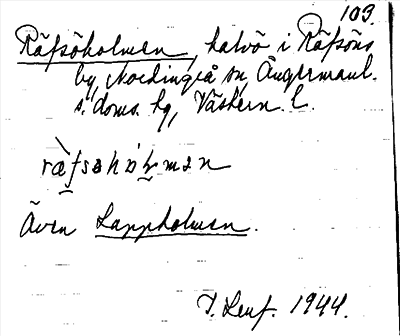 103.
Räfsöholmen, halvö i Räfsöns
by, Nordingrå sn, Ångermanl.
s. doms. hg, Västern. l.
ræ̀fsəhòlmən
Även Lappholmen.
1944.